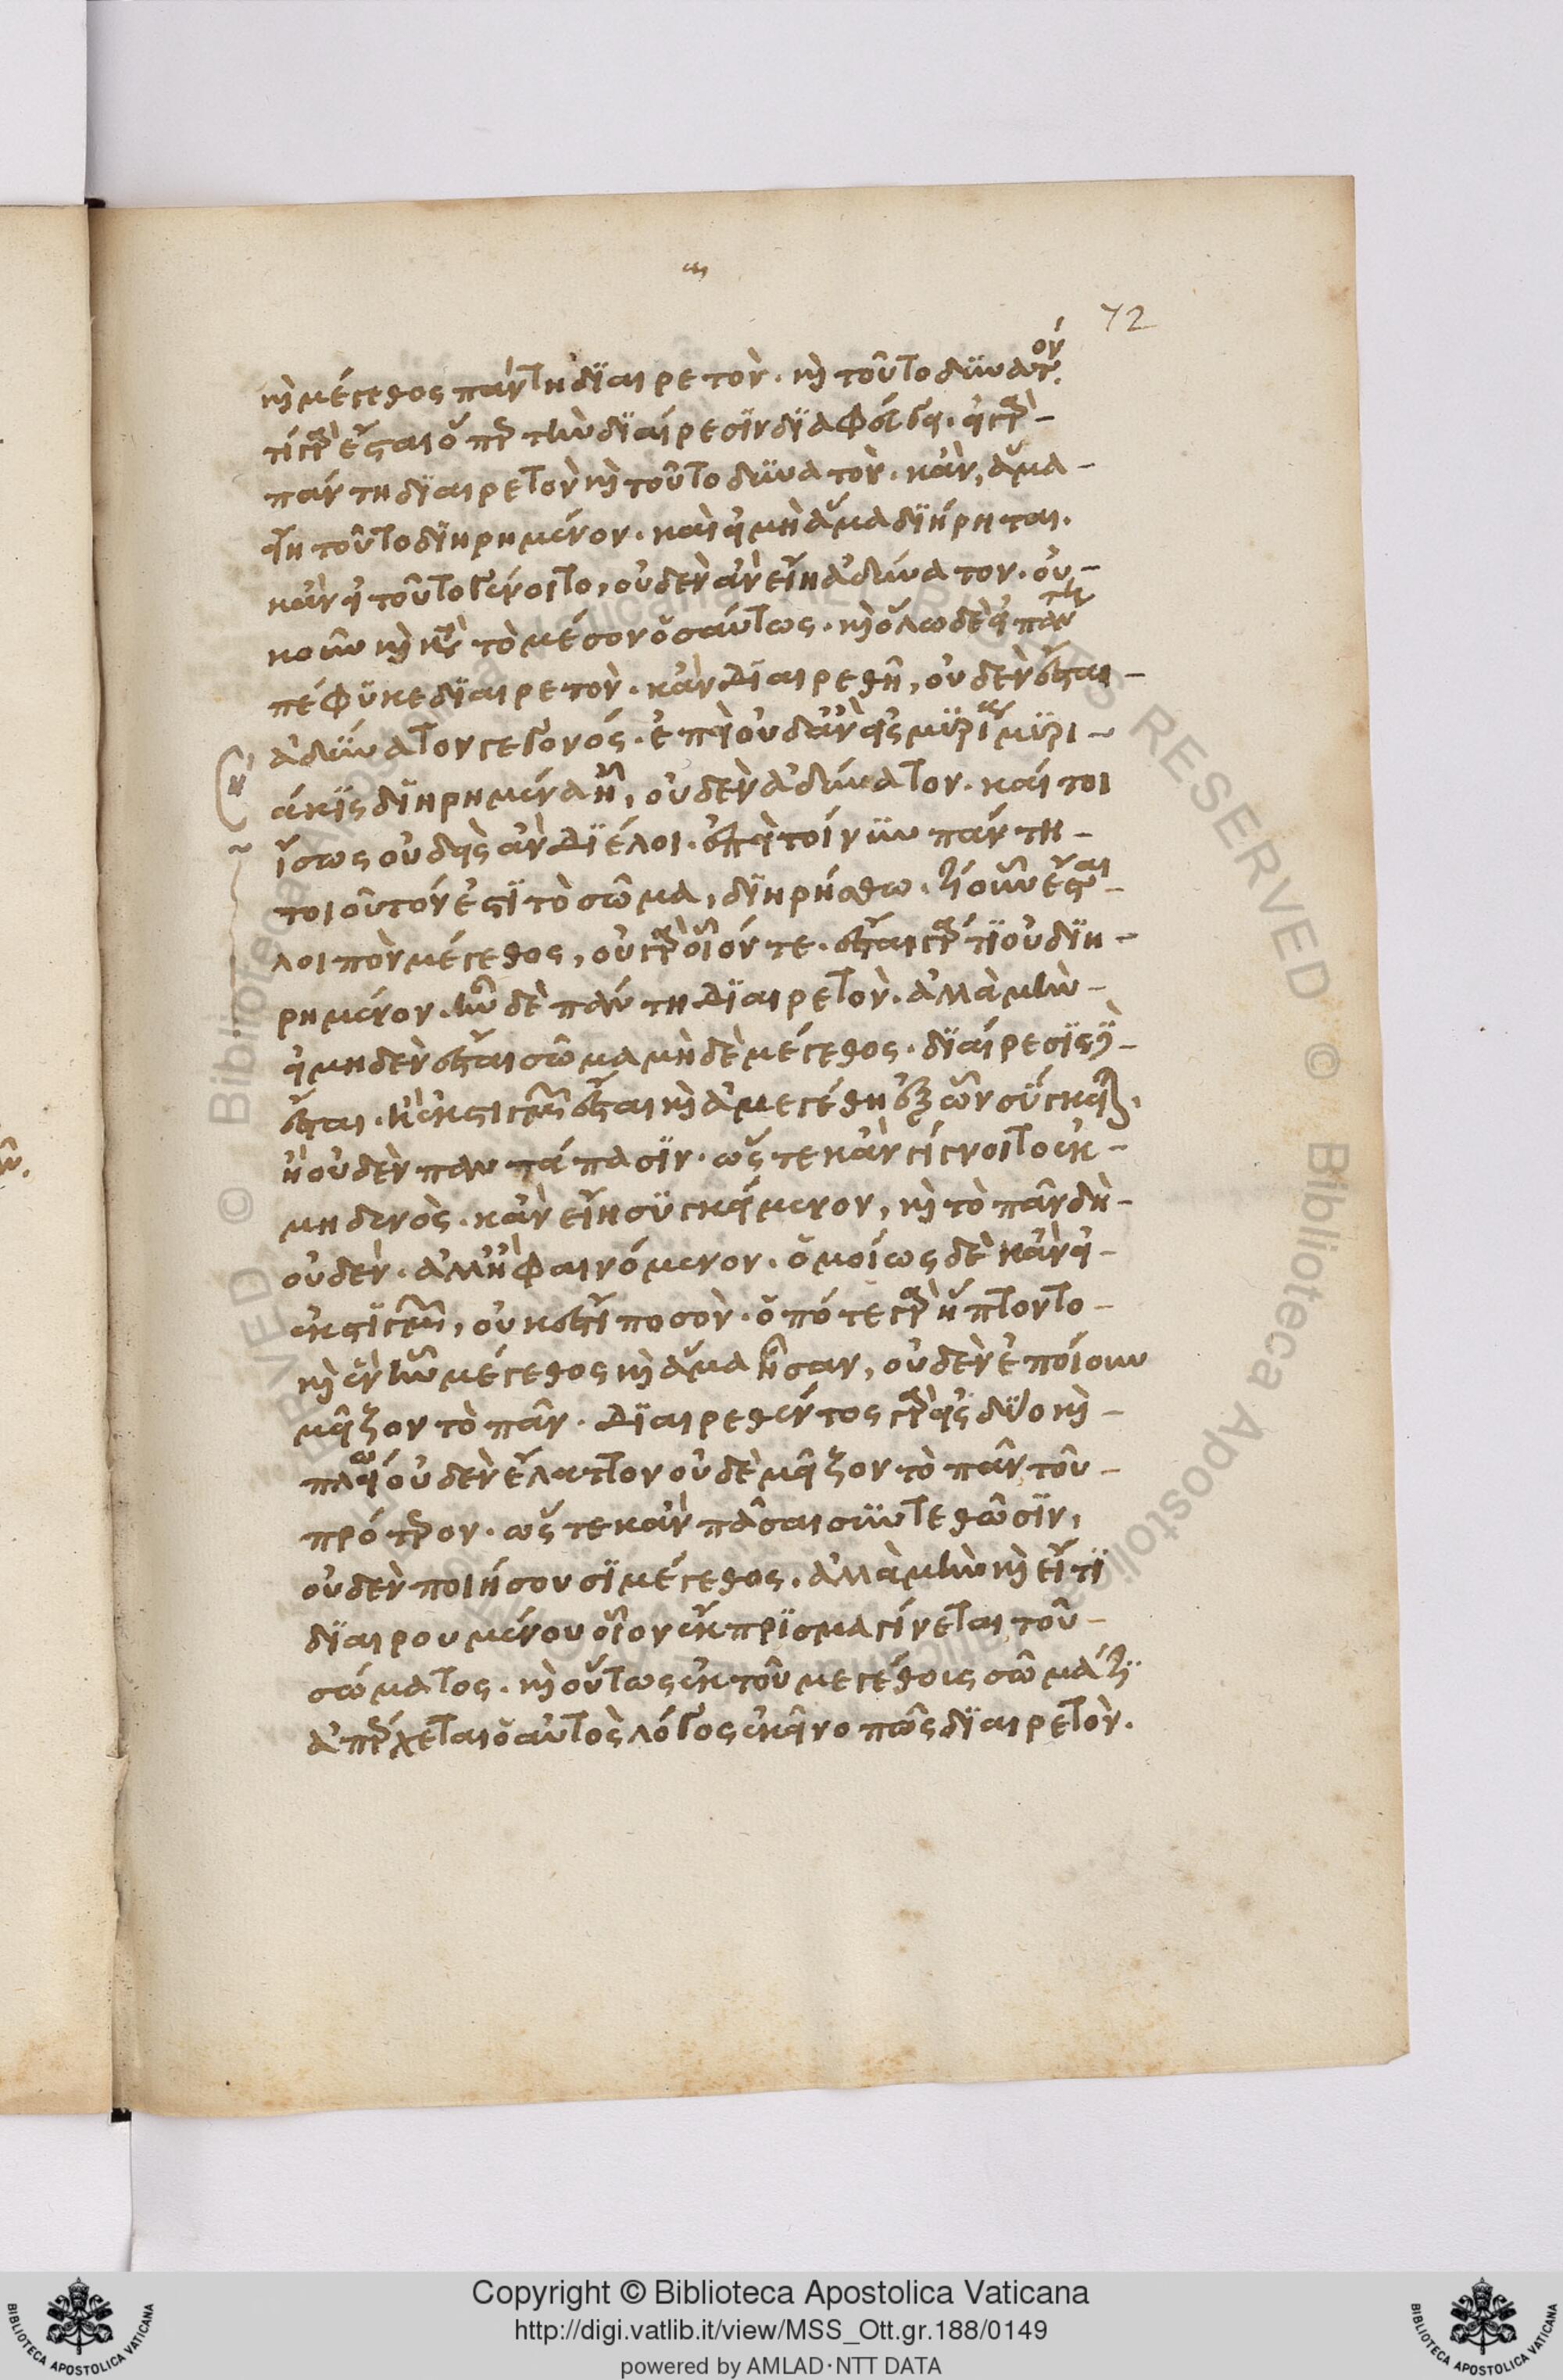 72
καὶ μέγεθος πάντη διαιρετόν. καὶ τοῦτο δυνατόν.
τί γὰρ ἔσται ὅπερ τὴν διαίρεσιν διαφεύγει. εἰ γὰρ
πάντη διαιρετὸν καὶ τοῦτο δυνατόν. κἂν, ἅμα
εἴη τοῦτο διηρημένον. καὶ εἰ μὴ ἅμα διήρηται.
κἂν εἰ τοῦτο γένοιτο, οὐδὲν ἂν εἴη ἀδύνατον. οὐ-
κοῦν καὶ κατὰ τὸ μέσον ὡσαύτως. καὶ ὅλως δὲ εἰ πάντη
πέφυκε διαιρετόν. κἂν διαιρεθῇ, οὐδὲν ἔσται
ἀδύνατον γεγονός. ἐπεὶ οὐδ' ἂν εἰς μυρία μυρι-
άκις διηρημένα ᾖ, οὐδὲν ἀδύνατον. καίτοι
ἴσως οὐδεὶς ἂν διέλοι. ἐπεὶ τοίνυν πάντη
τοιοῦτόν ἐστι τὸ σῶμα, διηρήσθω. τί οὖν ἔσται
λοιπὸν μέγεθος, οὐ γὰρ οἷόν τε. ἔσται γάρ τι οὐ διη-
ρημένον. ἦν δὲ πάντη διαιρετόν. ἀλλὰ μὴν
εἰ μηδὲν ἔσται σῶμα μηδὲ μέγεθος. διαίρεσις δὲ
ἔσται. ἢ ἐκ στιγμῶν ἔσται καὶ ἀμεγέθη ἐξ ὧν σύγκειται.
ἢ οὐδὲν παντάπασιν. ὥς τε κἂν γίγνοιτο ἐκ
μηδενὸς. κἂν εἴη συγκείμενον, καὶ τὸ πᾶν δὴ
οὐδὲν. ἀλλ' ἢ φαινόμενον. ὁμοίως δὲ κἂν εἰ
ἐκ στιγμῶν, οὐκ ἔσται ποσόν. ὁπότε γὰρ ἥπτοντο
καὶ ἓν ἦν μέγεθος καὶ ἅμα ἦσαν, οὐδὲν ἐποίουν
μεῖζον τὸ πᾶν. διαιρεθέντος γὰρ εἰς δύο καὶ
πλείω οὐδὲν ἔλαττον οὐδὲ μεῖζον τὸ πᾶν τοῦ
πρότερον. ὥς τε κἂν πᾶσαι συντεθῶσιν,
οὐδὲν ποιήσουσι μέγεθος. ἀλλὰ μὴν καὶ εἴ τι
διαιρουμένου οἷον ἔκπρισμα γίνεται τοῦ
σώματος. καὶ οὕτως ἐκ τοῦ μεγέθους σῶμά τι
ἀπέρχεται ὁ αὐτὸς λόγος ἐκεῖνο πῶς διαιρετόν.
Copyright © Biblioteca Apostolica Vaticana
http://digi.vatlib.it/view/MSS_Ott.gr.188/0149
powered by AMLAD·NTT DATA